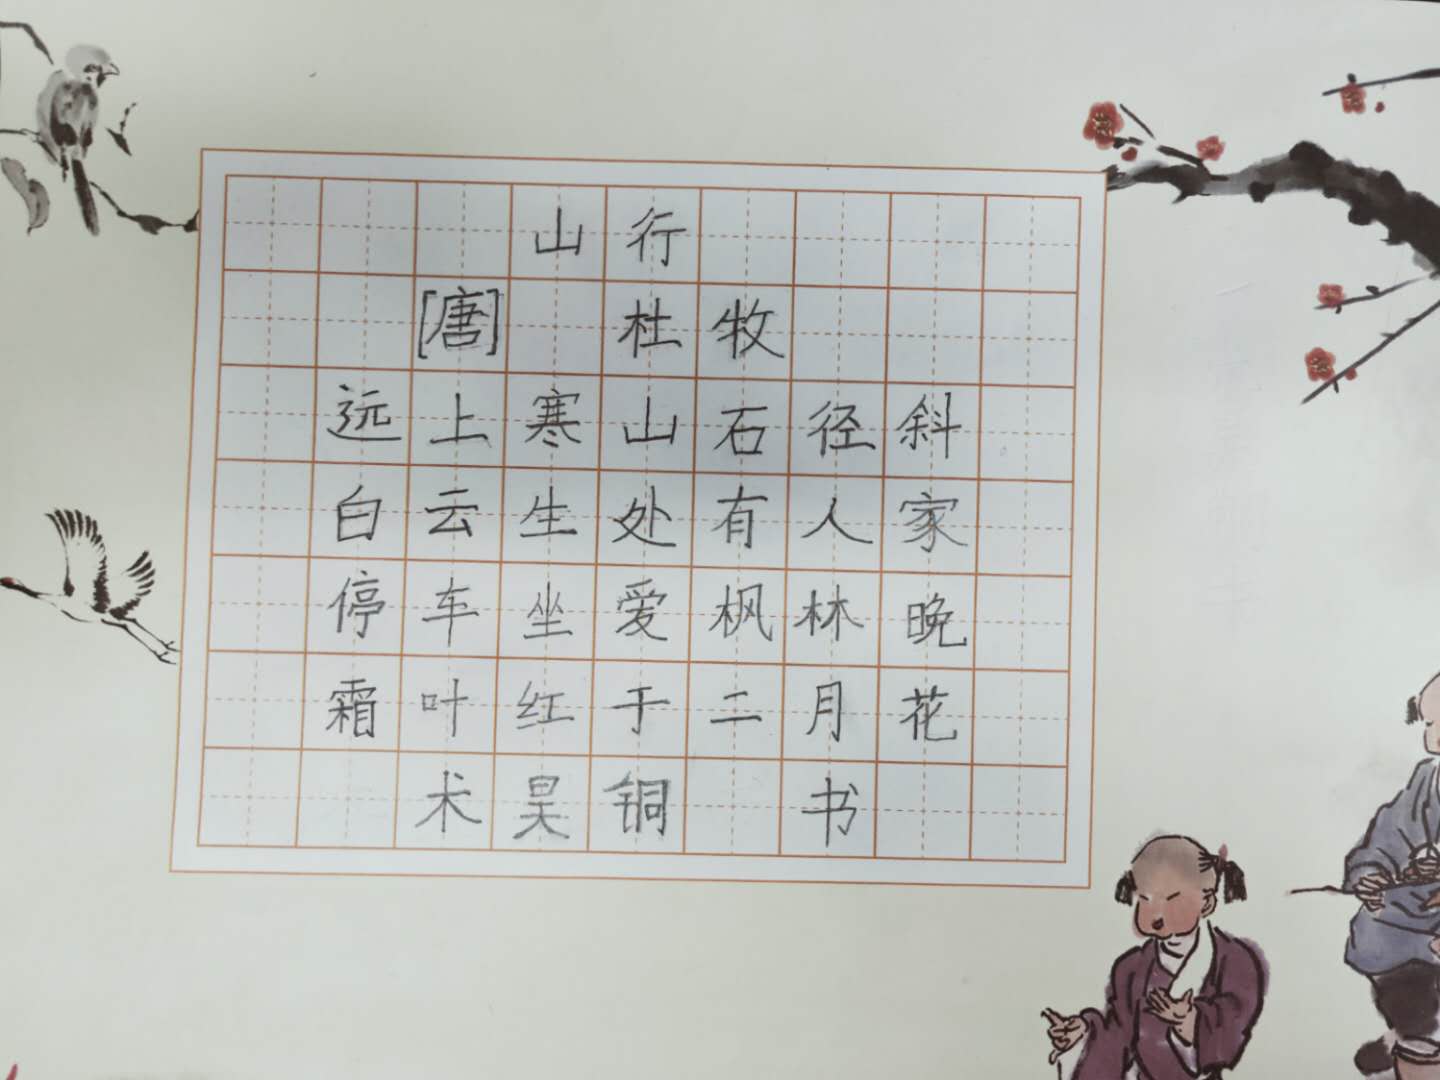 山行
[唐] 杜牧
远上寒山石径斜
白云生处有人家
停车坐爱枫林晚
霜叶红于二月花
术昊铜 书